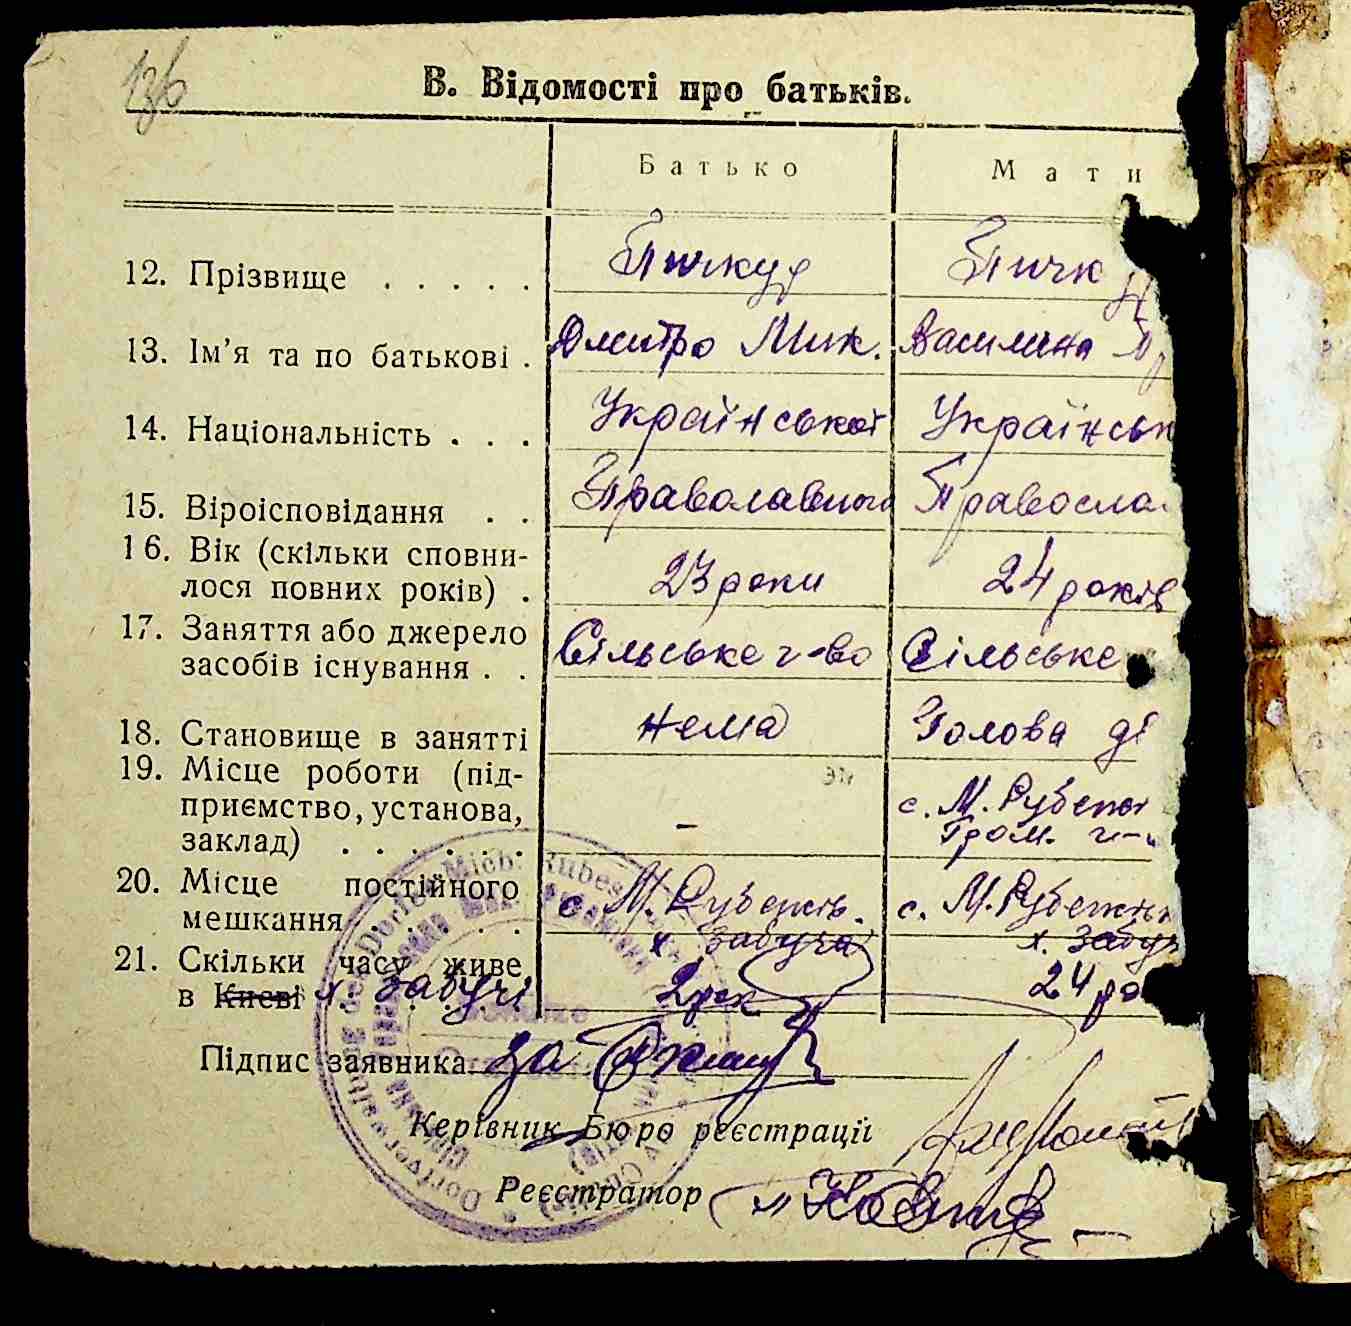 136
В. Відомості про батьків.
Батько Мати
12. Прізвище . . . . . Пичкур Пичкур
13. Ім'я та по батькові . Дмитро Мик. Василина
14. Національність . . . Української Українськ
15. Віроісповідання . . Праволавного Правосла
16. Вік (скільки сповни-
лося повних років) . 23 роки 24 років
17. Заняття або джерело
засобів існування . . Сільське г-во Сільське
18. Становище в занятті нема Голова
19. Місце роботи (під-
приємство, установа, с. М. Рубежі
заклад) . . . . . . . – Гром. г-
20. Місце постійного с. М. Рубежів. с. М. Рубежів
мешкання . . . . х. Забуча х. Забуч
21. Скільки часу живе
в Києві х. Забучі 2 рок 24 ро
Підпис заявника за
Керівник Бюро реєстрації
Реєстратор
Dorfverwaltung des Dorfes Mich. Rubes